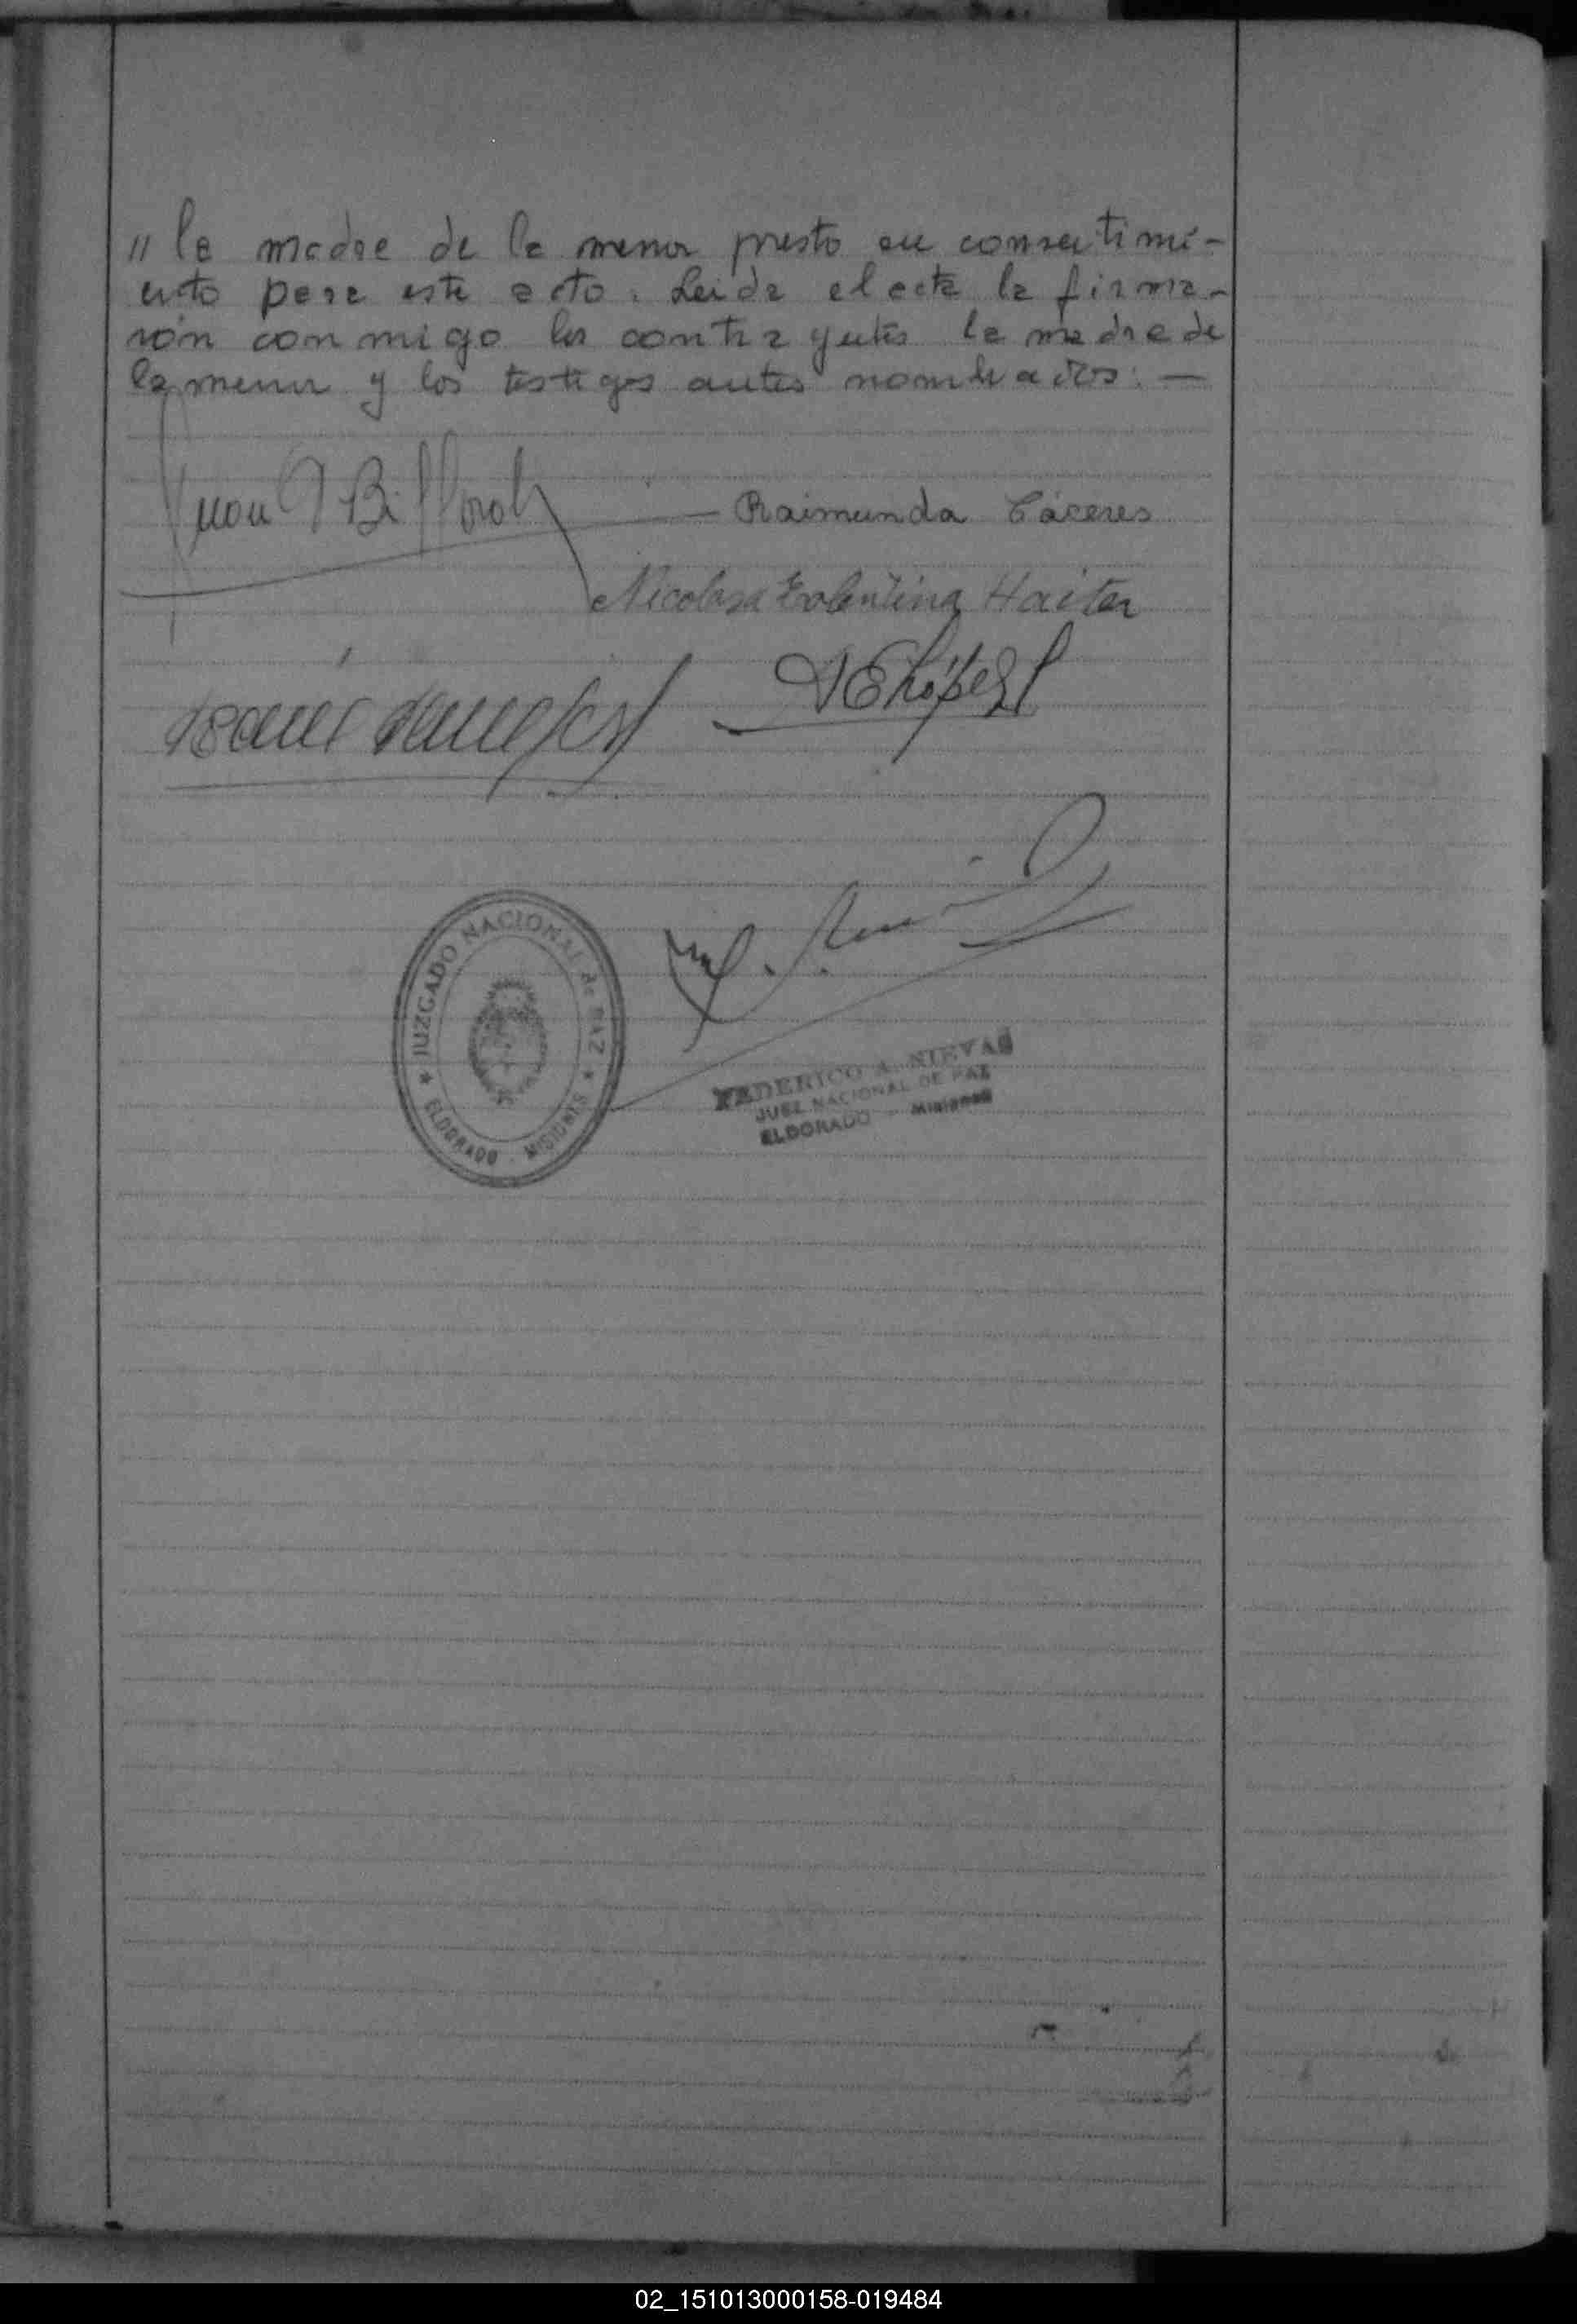 " la madre de la menor presto su consentimi-
ento para este acto. Leida el acta la firma-
rón conmigo los contrayentes la madre de
la menor y los testigos antes nombrados: —
Juan Raimunda Cáceres
Nicolasa Valentina Haiter
López
JUZGADO NACIONAL de PAZ
ELDORADO - MISIONES
FEDERICO A. NIEVAS
JUEZ NACIONAL DE PAZ
ELDORADO - Misiones
02_151013000158-019484